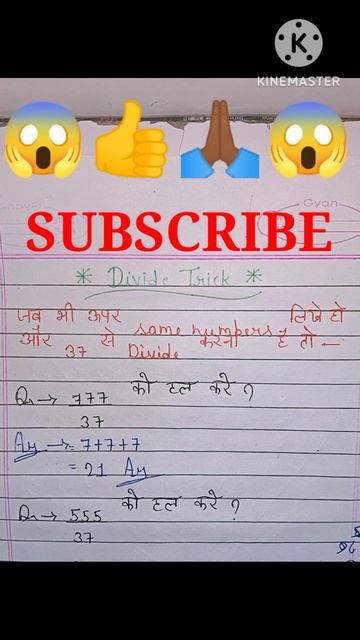 KINEMASTER
Gyan
SUBSCRIBE
* Divide Trick *
जब भी ऊपर same numbers लिखे हो
और 37 से Divide करना है तो —
Qu → 777/37 को हल करे ?
Ans → = 7+7+7
= 21 Ans
Qu → 555/37 को हल करे ?